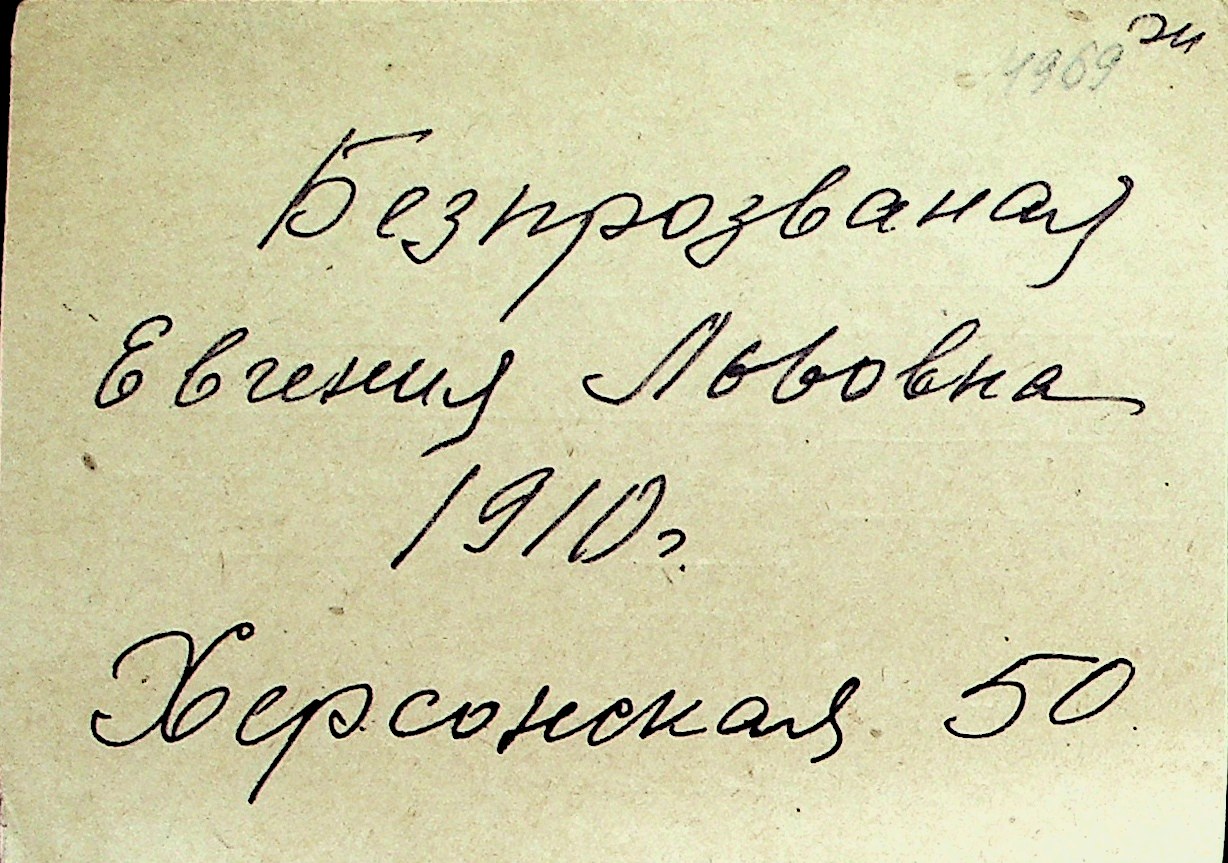 1969
Безпрозваная
Евгения Львовна
1910г.
Херсонская 50